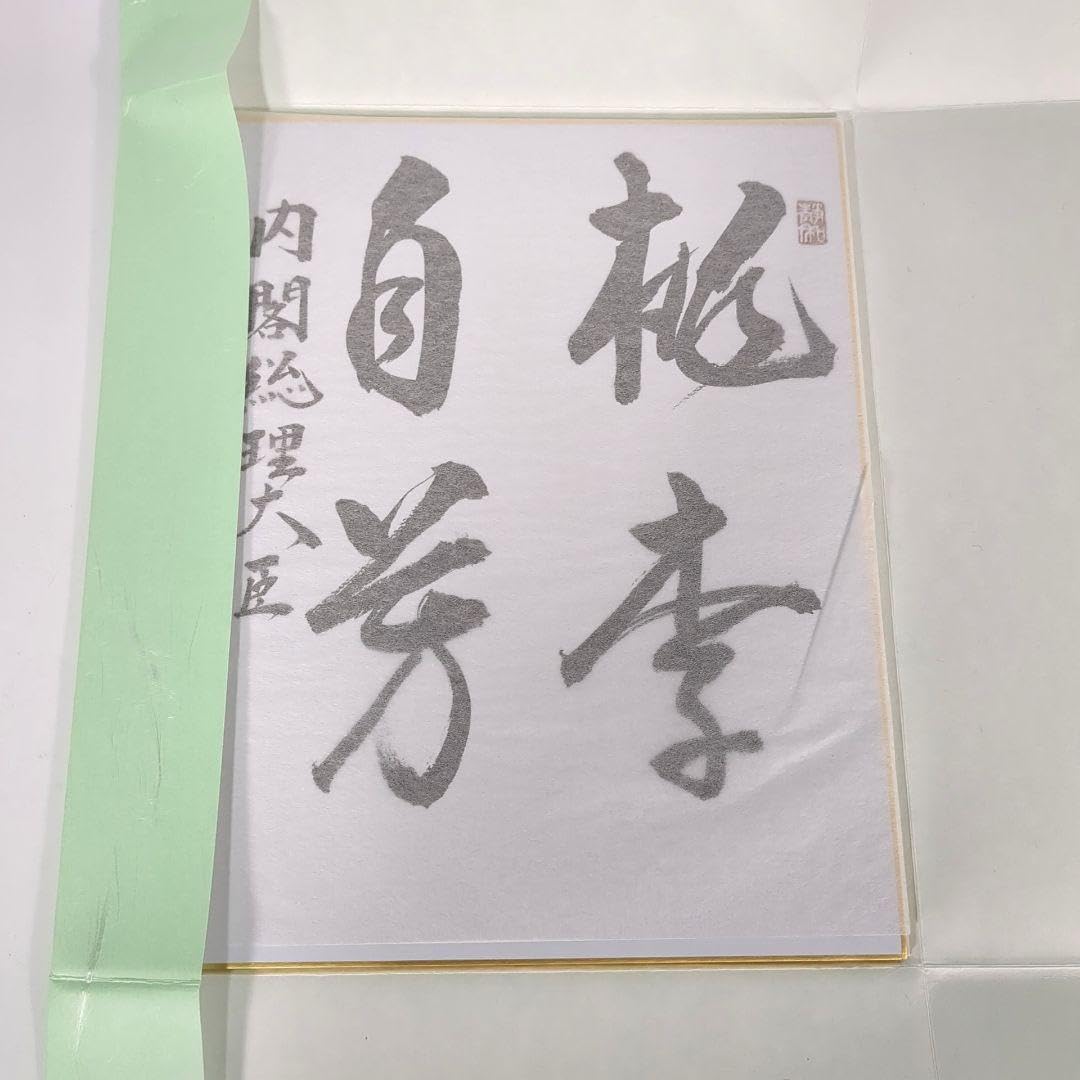 桃李
自芳
内閣総理大臣